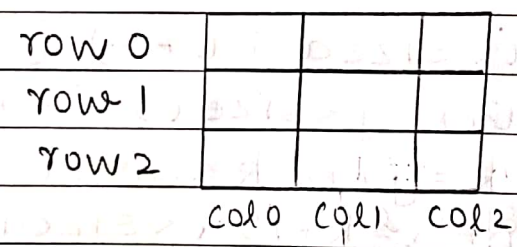 row 0
row 1
row 2
col 0 col 1 col 2